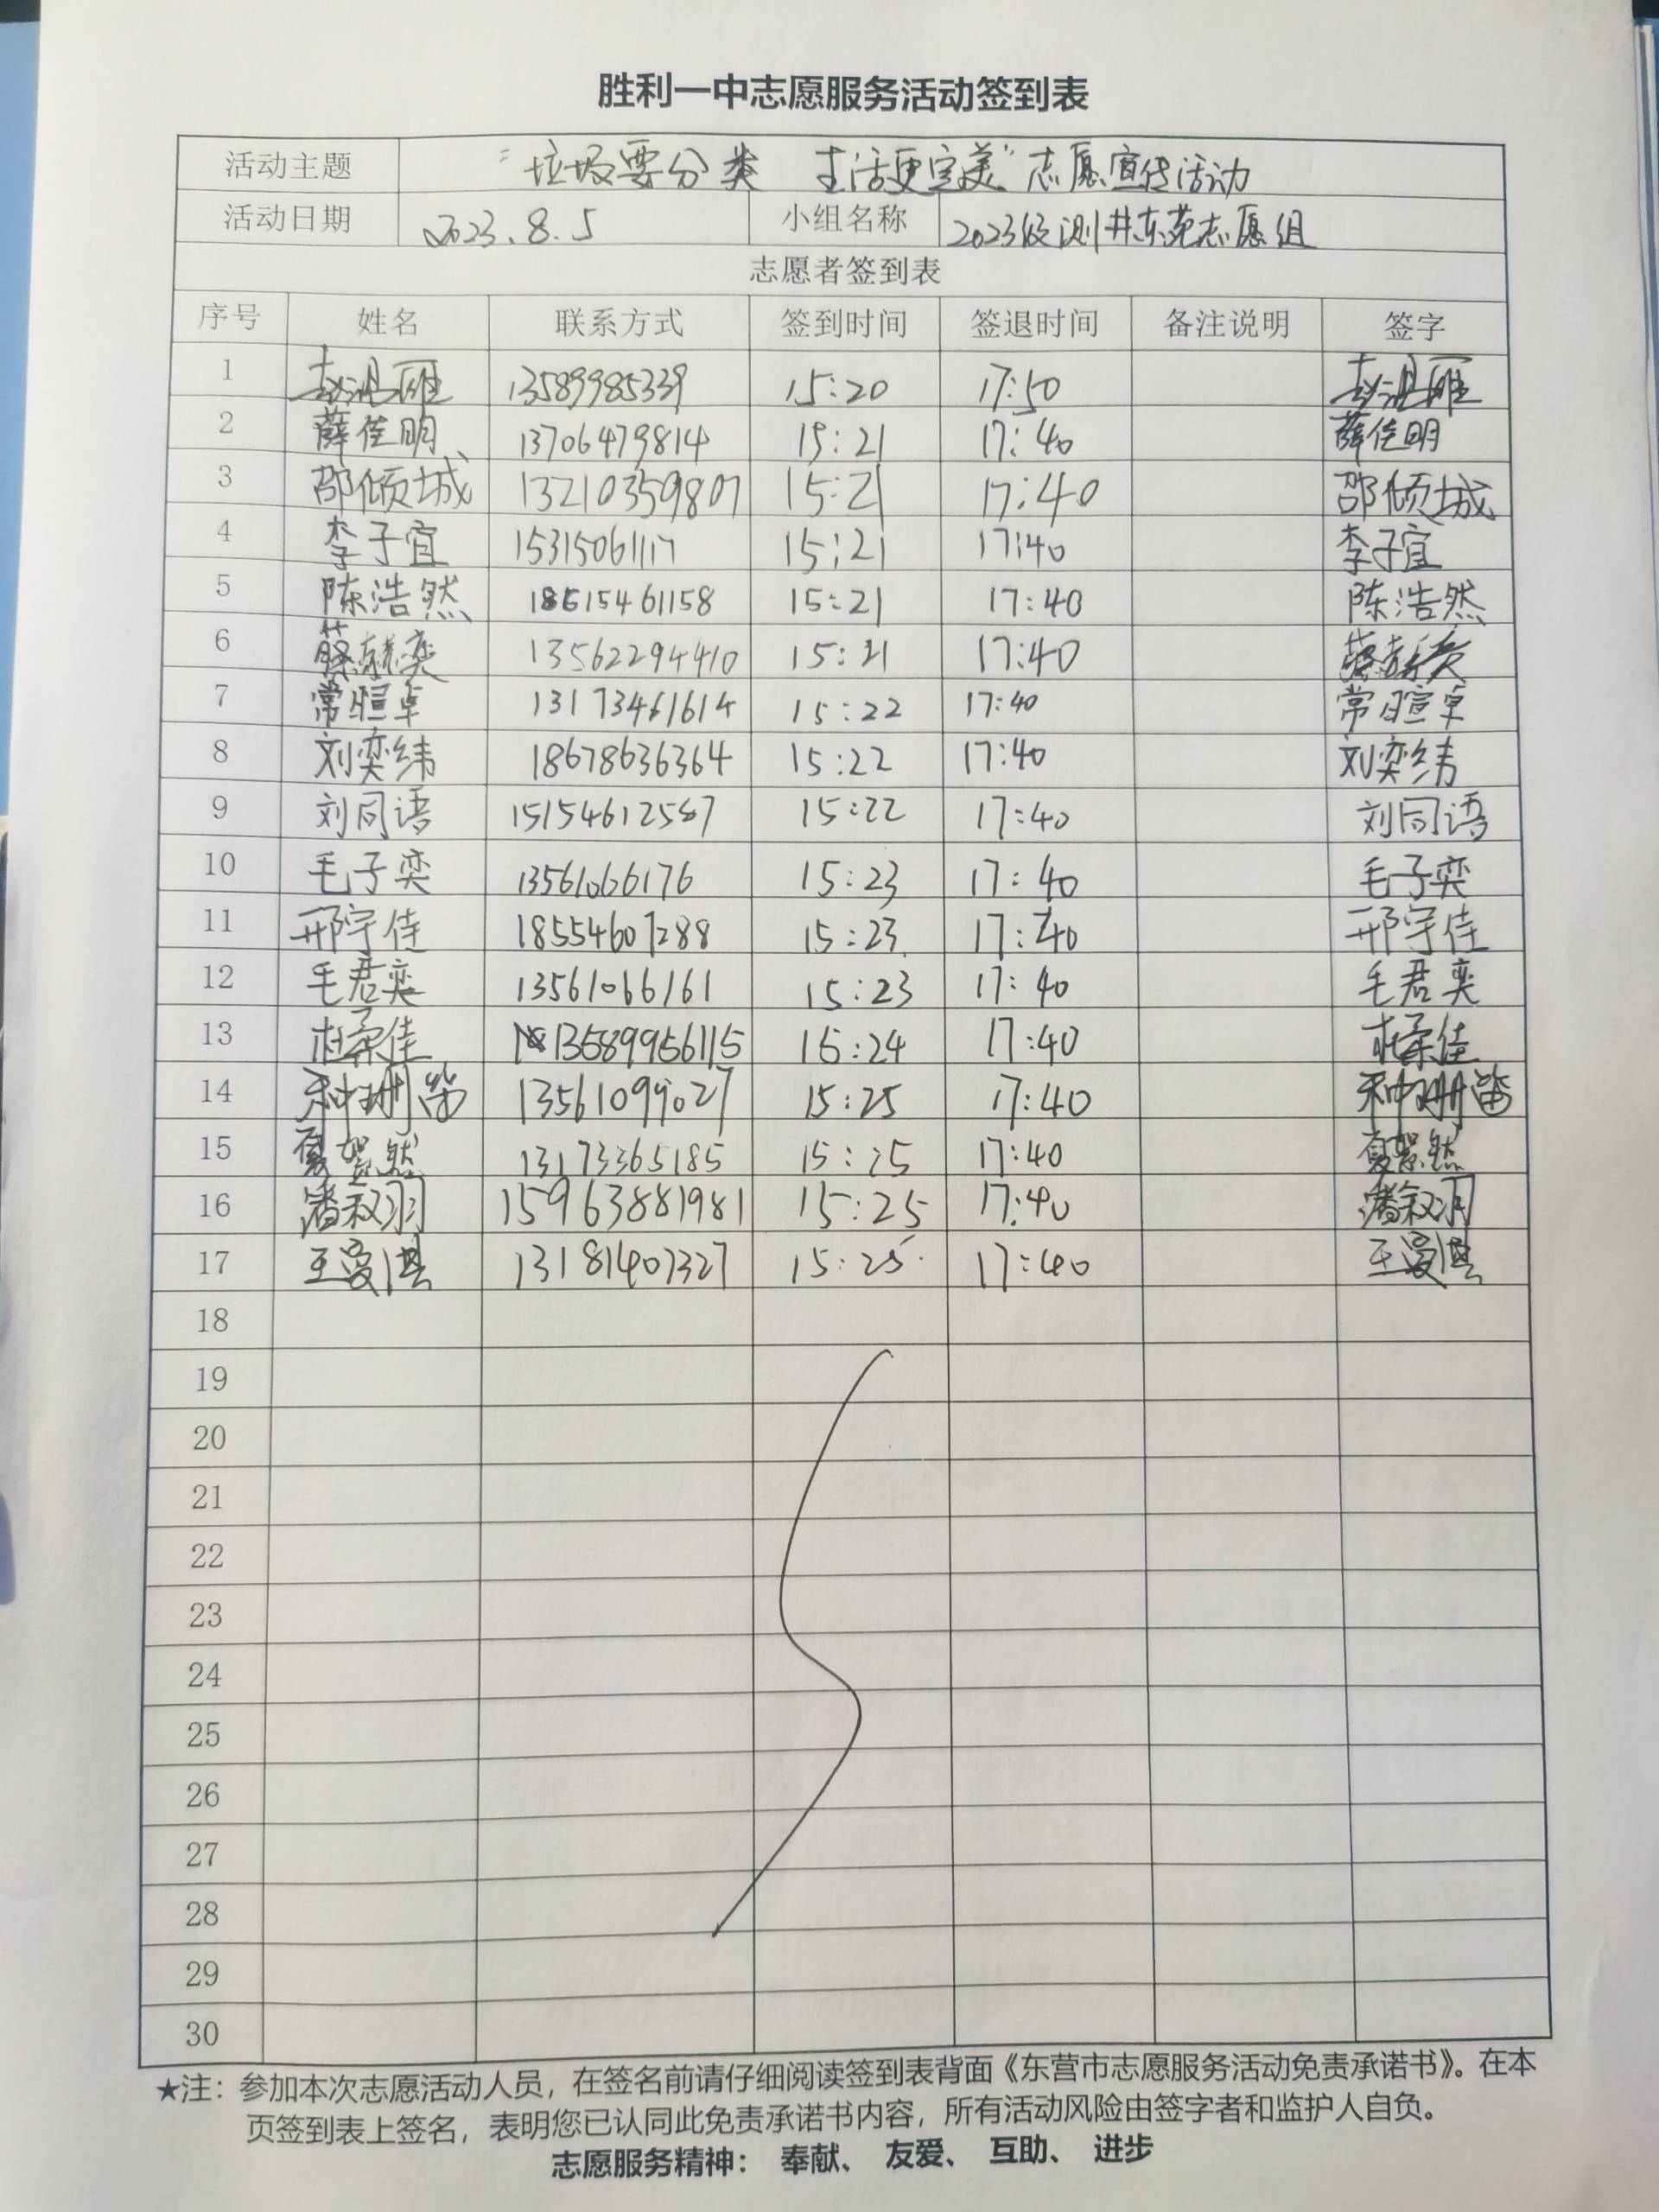 胜利一中志愿服务活动签到表
活动主题 "垃圾要分类 生活更完美"志愿宣传活动
活动日期 2023.8.5 小组名称 2023级测井东苑志愿组
志愿者签到表
序号 姓名 联系方式 签到时间 签退时间 备注说明 签字
1 13589985339 15:20 17:50
2 薛佳明 13706479814 15:21 17:40 薛佳明
3 邵倾城 13210359807 15:21 17:40 邵倾城
4 李子宜 15315061117 15:21 17:40 李子宜
5 陈浩然 18615461158 15:21 17:40 陈浩然
6 13562294410 15:21 17:40
7 常暄卓 13173461614 15:22 17:40 常暄卓
8 刘奕纬 18678636364 15:22 17:40 刘奕纬
9 刘同语 15154612567 15:22 17:40 刘同语
10 毛子奕 13561066176 15:23 17:40 毛子奕
11 邢宇佳 18554607288 15:23 17:40 邢宇佳
12 毛君奕 13561066161 15:23 17:40 毛君奕
13 杜柔佳 13589956115 15:24 17:40 杜柔佳
14 种珊笛 13561099027 15:25 17:40 种珊笛
15 夏贺然 13173365185 15:25 17:40 夏贺然
16 潘叙羽 15963881981 15:25 17:40 潘叙羽
17 王曼淇 13181407327 15:25 17:40 王曼淇
18
19
20
21
22
23
24
25
26
27
28
29
30
★注：参加本次志愿活动人员，在签名前请仔细阅读签到表背面《东营市志愿服务活动免责承诺书》。在本
页签到表上签名，表明您已认同此免责承诺书内容，所有活动风险由签字者和监护人自负。
志愿服务精神： 奉献、 友爱、 互助、 进步